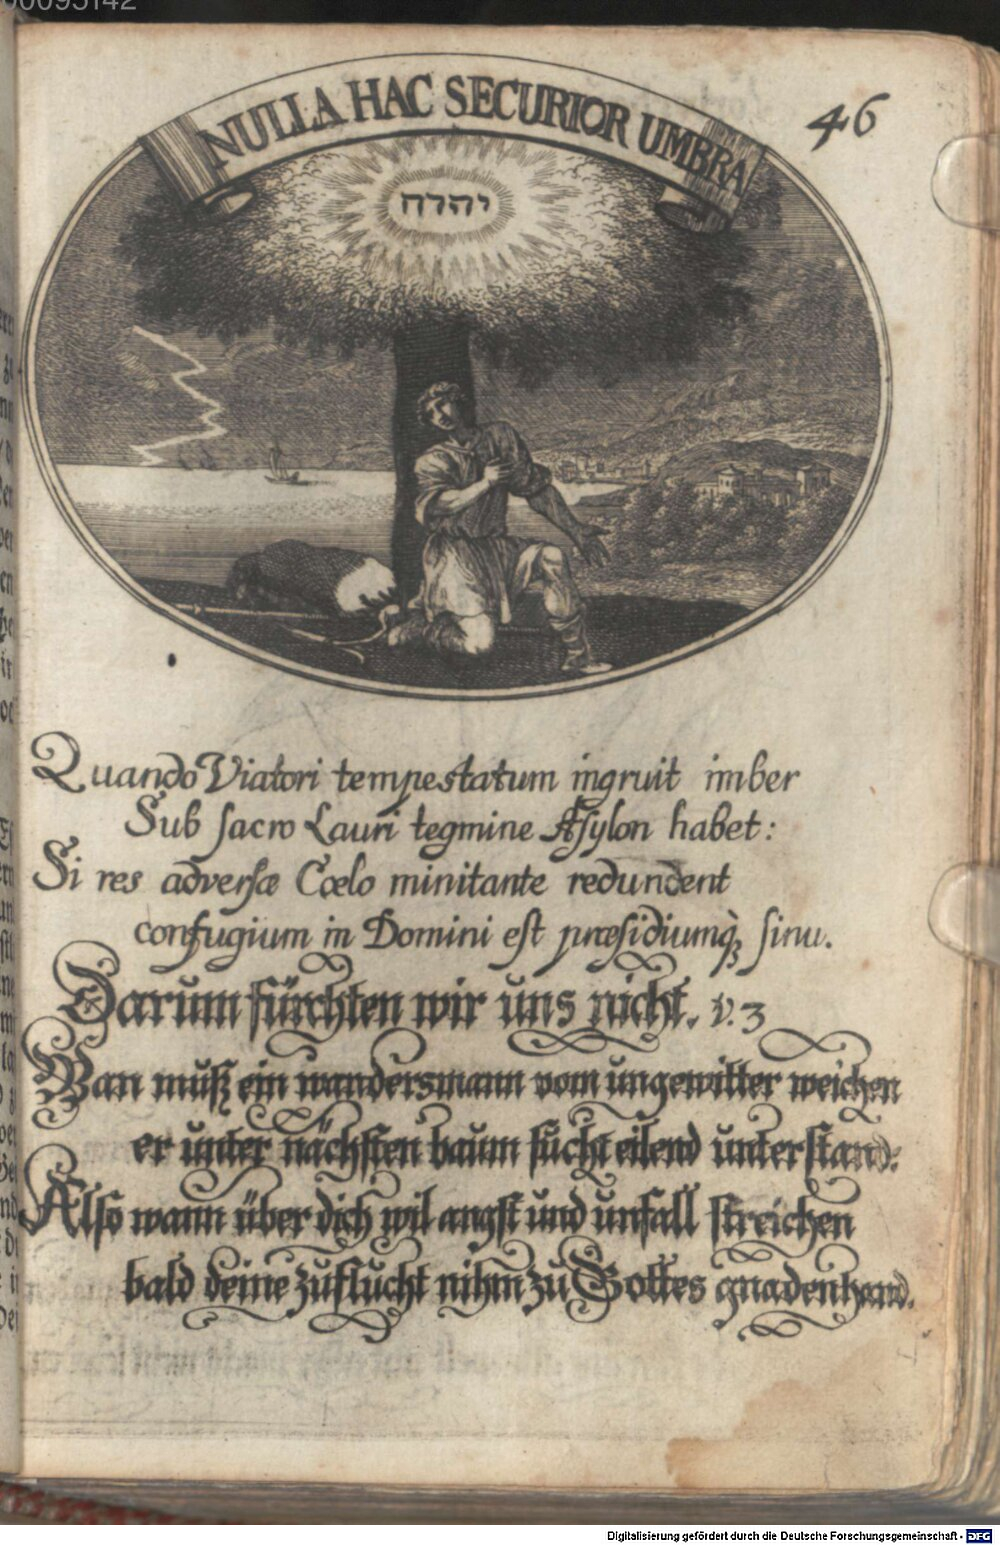 00095142
NULLA HAC SECURIOR UMBRA
46
יהוה
Quando Viatori tempestatum ingruit imber
Sub sacro Lauri tegmine Asylon habet:
Si res adversæ Cœlo minitante redundent
confugium in Domini est præsidiumq; sinu.
Darum fürchten wir uns nicht. v. 3
Wan muß ein wandersmann vom ungewitter weichen
er unter nächsten baum sucht eilend unterstand:
Also wann über dich wil angst und unfall streichen
bald deine zuflucht nihm zu Gottes gnadenhand.
Digitalisierung gefördert durch die Deutsche Forschungsgemeinschaft - DFG